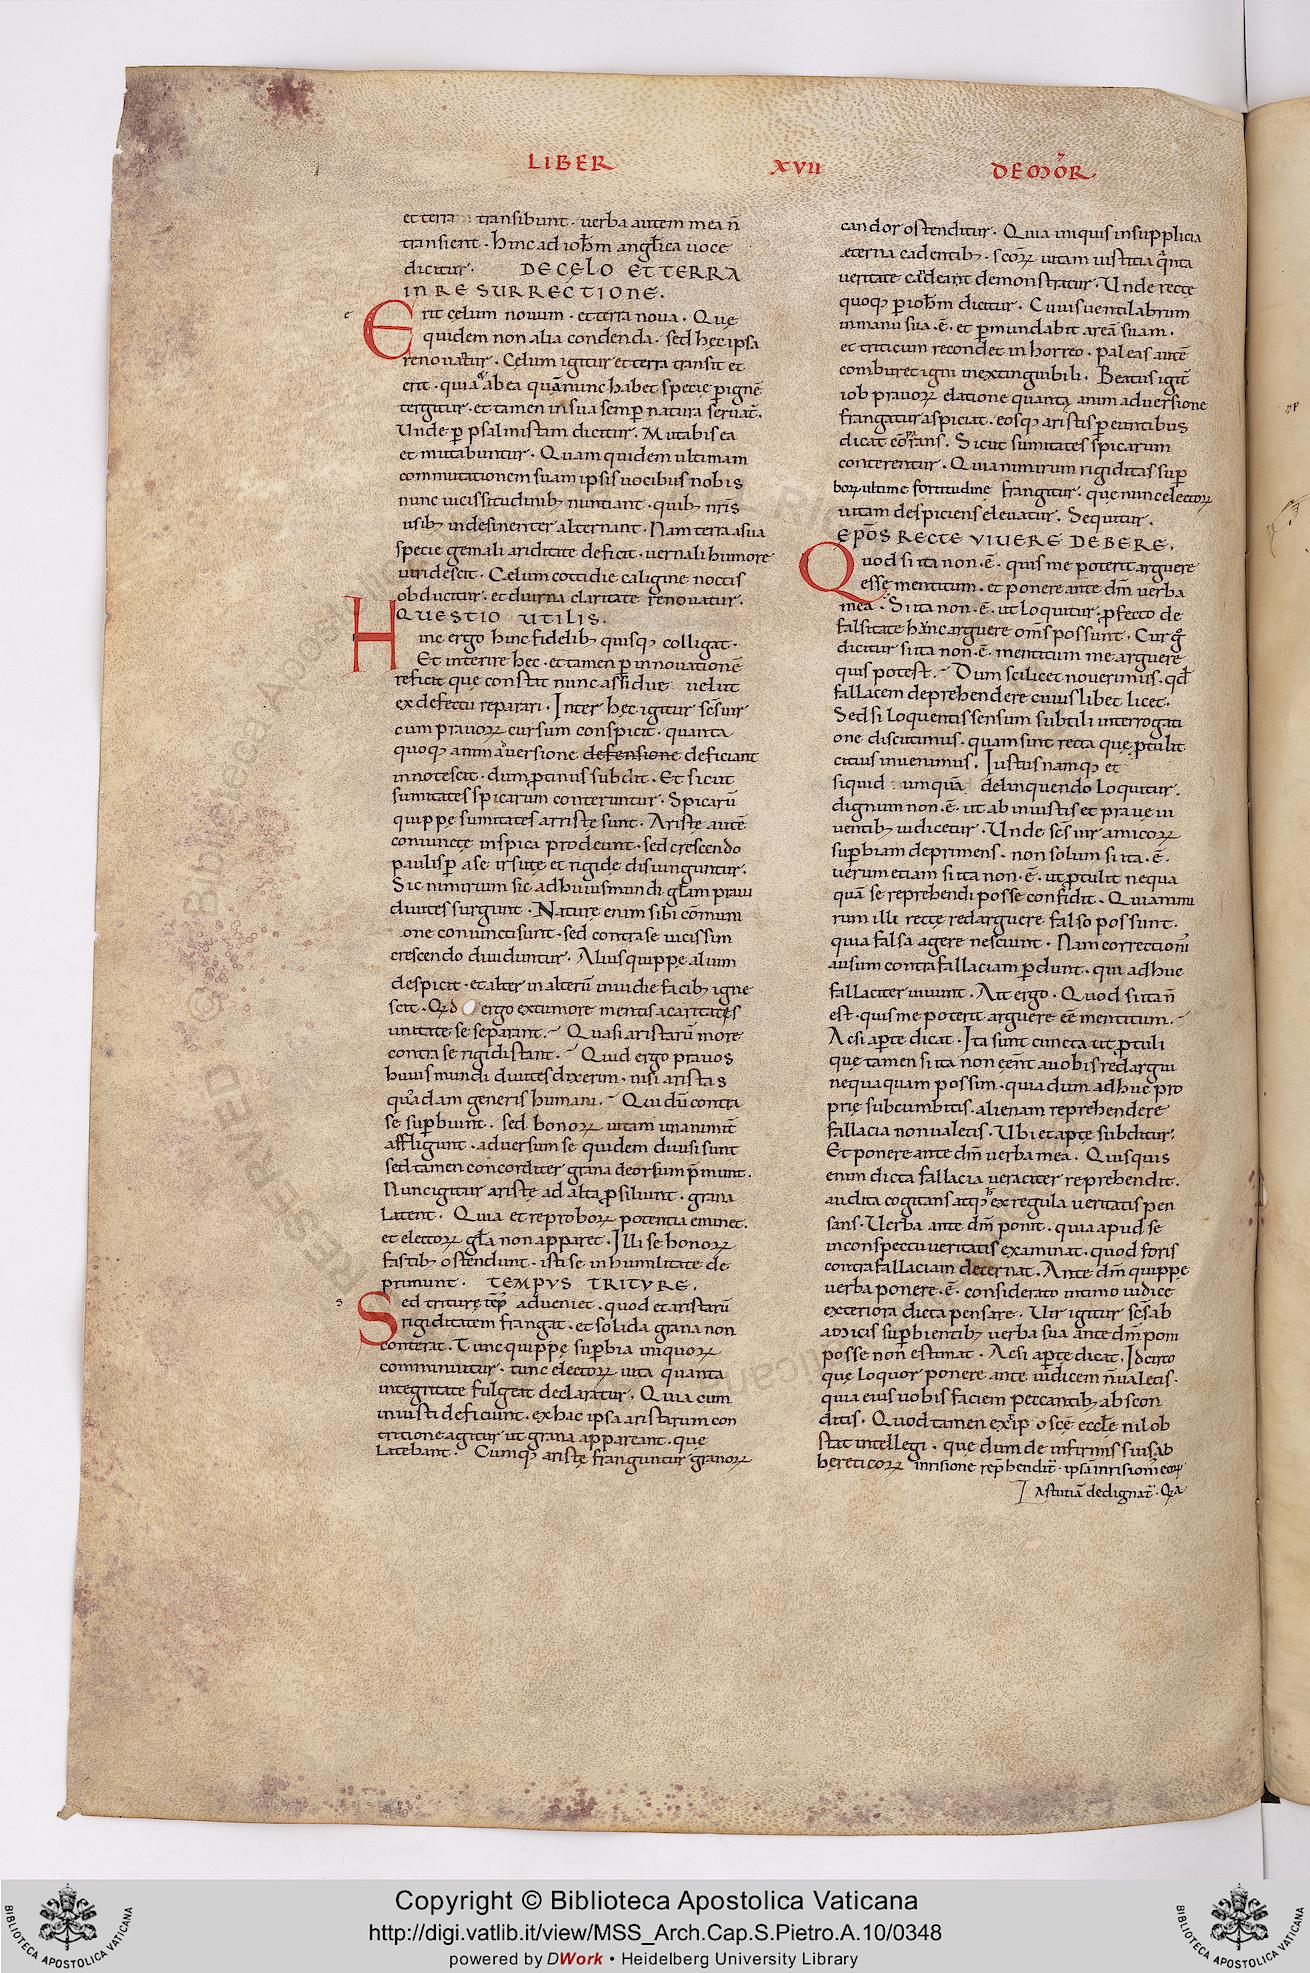 LIBER XVII DE MOR̄
et terra transibunt · verba autem mea n̄
transient · hinc ad ioh̄m angl̄ica uoce
dicitur · DE CELO ET TERRA
IN RESURRECTIONE.
Erit celum nouum · et terra noua · Que
quidem non alia condenda · sed hęc ipsa
renouatur · Cęlum igitur et terra transit et
erit · quia ab ea quā nunc habet specię p ignē
tergitur · et tamen in sua semp natura seruat̄.
Unde p psalmistam dicitur. Mutabis ea
et mutabuntur · Quam quidem ultimam
commutationem suam ipsis uocibus nobis
nunc uicissitudinib; nuntiant · quib; nr̄is
usib; indesinenter alternant · Nam terra a sua
specie gemali ariditate deficit · uernali humore
uiridescit · Celum cottidie caligine noctis
obducitur · et diurna claritate renouatur.
QUESTIO UTILIS.
Hinc ergo hinc fidelib; quisq; colligat ·
Et interire hec · et tamen p innouationē
reficit que constat nunc assidue uelut
ex defectu reparari · Inter hęc igitur sc̄s uir
cum prauoꝝ cursum conspicit · quanta
quoq; animaduersione defensione deficiant
innotescit · dum protinus subdit · Et sicut
sumitates spicarum conteruntur · Spicarū
quippe sumitates arristę sunt · Aristę autē
coniunctę in spica prodeunt · sed crescendo
paulisp a se irsutę et rigidę disiunguntur.
Sic nimirum sic ad huius mundi gl̄am praui
diuites surgunt · Naturę enim sibi cōmuni
one coniuncti sunt · sed contra se uicissim
crescendo diuiduntur · Alius quippe alium
despicit · et alter in alterū inuidie facib; igne
scit · Qd ergo extumore mentis a caritatęs
unitate se separant · Quasi aristarū more
contra se rigidi stant · Quid ergo prauos
huius mundi diuites dixerim · nisi aristas
quādam generis humani · Qui dū contra
se supbiunt · sed bonoꝝ uitam unanimit̄
affligunt · aduersum se quidem diuisi sunt
sed tamen concorditer grana deorsum p̄munt.
Nunc igitur aristę ad alta prosiliunt · grana
latent · Quia et reproboꝝ potentia eminet ·
et electoꝝ gl̄a non apparet · Illi se honoꝝ
fastib; ostendunt · isti se in humilitate de
primunt · TEMPUS TRITURE.
Sed triturę tēp adueniet · quod et aristarū
rigiditatem frangat · et solida grana non
conterat · Tunc quippe supbia iniquoꝝ
comminuitur · tunc electoꝝ uita quanta
integritate fulgeat declaratur · Quia cum
iniusti deficiunt · ex hac ipsa aristarum con
tritione agitur ut grana appareant · que
latebant · Cumq; aristę franguntur granoꝝ
candor ostenditur · Quia iniquis in supplicia
ęterna cadentib; · sc̄oꝝ uitam iustitia q̄nta
ueritate cādeant demonstratur · Unde rectę
quoq; p ioh̄m dicitur · Cuius uentilabrum
in manu sua · ē · et pmundabit areā suam ·
et triticum recondet in horreo · paleas autē
comburet igni inextinguibili · Beatus igit̄
iob prauoꝝ elatione quanta animaduersione
frangatur aspiciat · eosq; aristis p euntibus
dicat cōpans · Sicut sumitates spicarum
conterentur · Quia nimirum rigiditas sup
boꝝ ultime fortitudine frangitur · que nunc electoꝝ
uitam despiciens eleuatur · Sequitur.
EPŌS RECTE VIVERE DEBERE.
Quod si ita non · ē · quis me poterit arguere
essę mentitum · et ponere ante dm̄ verba
mea · Si ita non · ē · ut loquitur · profecto de
falsitate hanc arguere om̄s possunt · Cur g̊
dicitur si ita non · ē · mentitum me arguere
quis potest · Dum scilicet nouerimus · qd̄
fallacem deprehendere cuius libet licet.
Sed si loquentis sensum subtili interrogati
one discutimus · quam sint recta quę protulit
citius inuenimus · Iustus namq; et
si quid umquā delinquendo loquitur ·
dignum non · ē · ut ab iniustis et praue ui
uentib; iudicetur · Unde sc̄s uir amicoꝝ
supbiam deprimens · non solum si ita · ē ·
uerum etiam si ita non · ē · ut protulit nequa
quā se reprehendi posse confidit · Quia nimi
rum illi rectę redarguere falso possunt ·
quia falsa agere nesciunt · Nam correctionis
ausum contra fallaciam pdunt · qui adhuc
fallaciter uiuunt · Ait ergo · Quod si ita n̄
est · quis me poterit arguere eē mentitum ·
Ac si apte dicat · Ita sunt cuncta ut protuli
quę tamen si ita non eēnt a uobis redargui
nequaquam possim · quia dum adhuc pro
prię subcumbitis · alienam reprehendere
fallacia non ualetis · Ubi et apte subditur:
Et ponere ante dm̄ uerba mea · Quisquis
enim dicta fallacia ueraciter reprehendit ·
audita cogitans atq; ex regula ueritatis pen
sans · Uerba ante dm̄ ponit · quia apud se
in conspectu ueritatis examinat · quod foris
contra fallaciam decernat · Ante dm̄ quippe
uerba ponere · ē · considerato intimo iudice
exteriora dicta pensare · Uir igitur sc̄s ab
amicis supbientib; uerba sua ante dm̄ poni
posse non estimat · Ac si apte dicat · Idcirco
quę loquor ponere ante iudicem n̄ ualetis ·
quia eius uobis faciem peccantib; abscon
ditis · Quod tamen ex tip̄o sc̄ę eccl̄e nil ob
stat intellegi · que dum de infirmis suis ab
hęreticoꝝ inrisione rep̄hendit̄ · ipsā inrisionē eoꝝ
astutiā dedignat̄ · Q̄a
Copyright © Biblioteca Apostolica Vaticana
http://digi.vatlib.it/view/MSS_Arch.Cap.S.Pietro.A.10/0348
powered by DWork • Heidelberg University Library